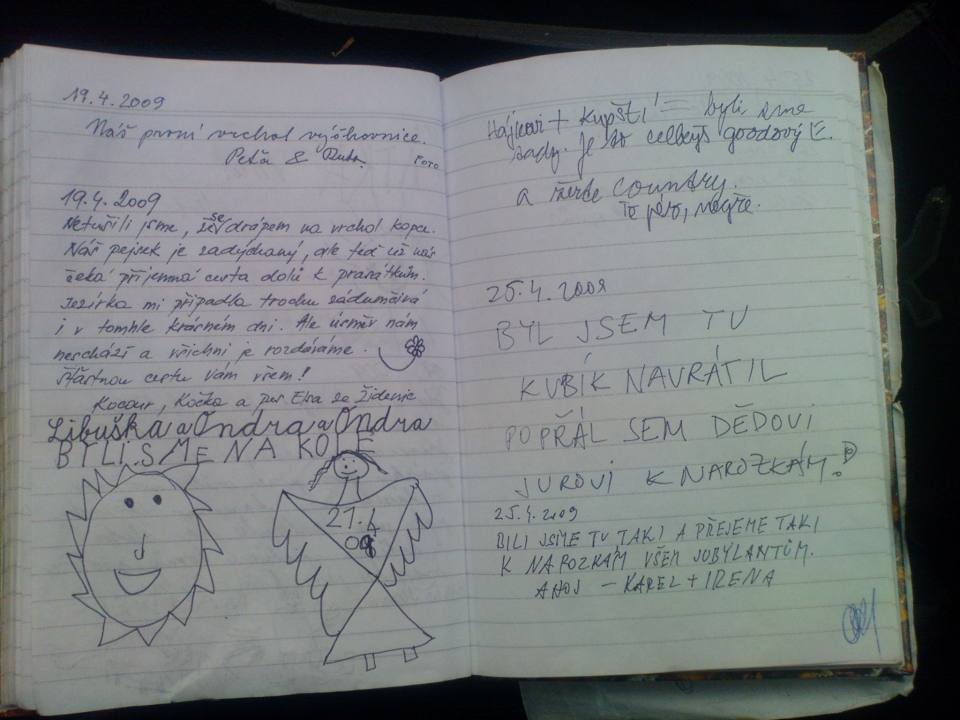 19.4.2009
Náš první vrchol vyškovnice.
Peťa &
FOTO
19.4.2009
Netušili jsme, že se drápem na vrchol kopce.
Náš pejsek je zadýchaný, ale teď už nás
čeká příjemná cesta dolů k prasátkům.
Jezírka mi připadla trochu zádumčivá
i v tomhle krásném dni. Ale úsměv nám
neschází a všichni je rozdáváme.
Šťastnou cestu Vám všem!
Kocour, Kočka a pes Elsa ze Židenic
Libuška a Ondra a Ondra
BYLI SME NA KOLE
21.4
09
Hájkovi + Kupští = byli sme
tady. Je to celkys goodový
a country.
To péro, negře.
25.4.2009
BYL JSEM TU
KUBÍK NAVRÁTIL
POPŘÁL SEM DĚDOVI
JUROVI K NAROZKÁM.
25.4.2009
BILI JSME TU TAKI A PŘEJEME TAKI
K NAROZKAM VŠEM JUBYLANTŮM.
AHOJ – KAREL + IRENA